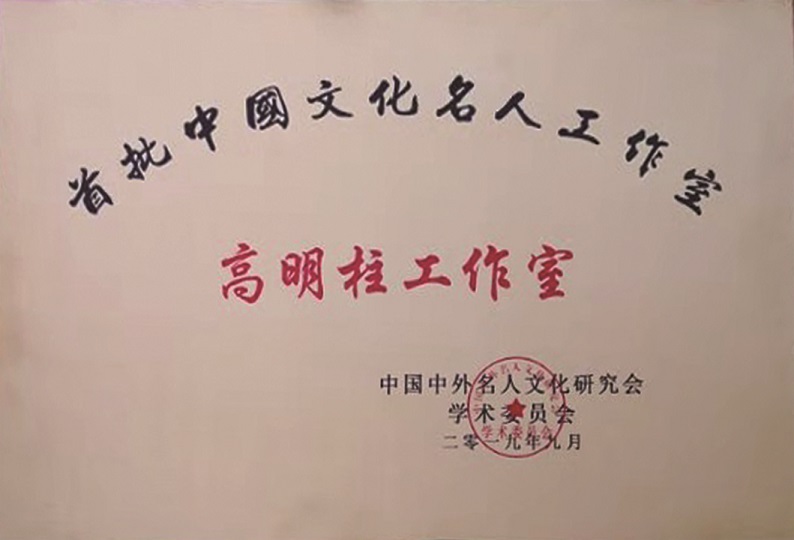 首批中國文化名人工作室
高明柱工作室
中国中外名人文化研究会
学术委员会
二零一九年九月
学术委员会